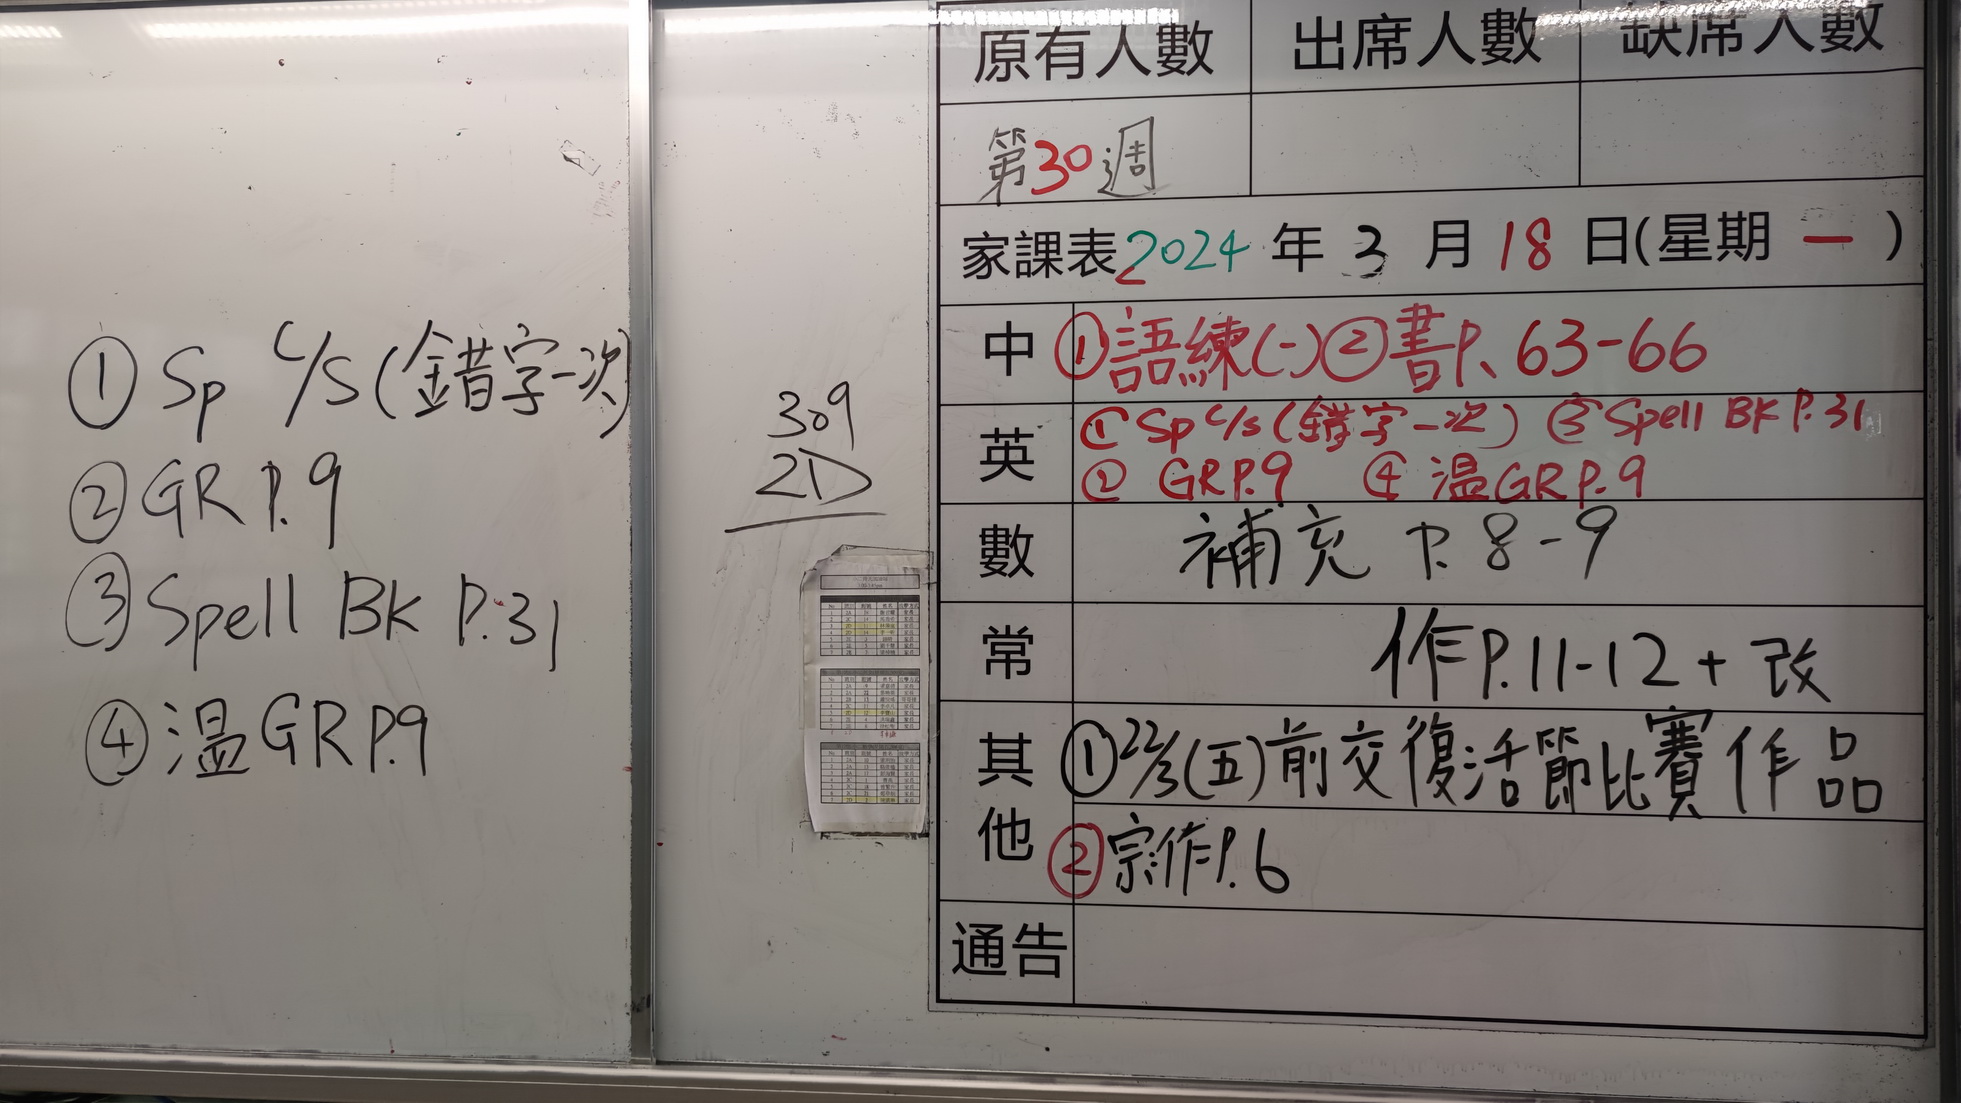 ① Sp c/s (錯字一次)
② GR P.9
③ Spell BK P.31
④ 温 GR P.9
309
2D
原有人數 出席人數 缺席人數
第30週
家課表 2024 年 3 月 18 日(星期 一 )
中 ①語練(一)②書P. 63-66
英 ① Sp c/s (錯字一次) ③ Spell BK P.31
② GR P.9 ④ 温GR P.9
數 補充 P. 8-9
常 作P.11-12 + 改
其他 ①22/3(五)前交復活節比賽作品
②宗作P.6
通告